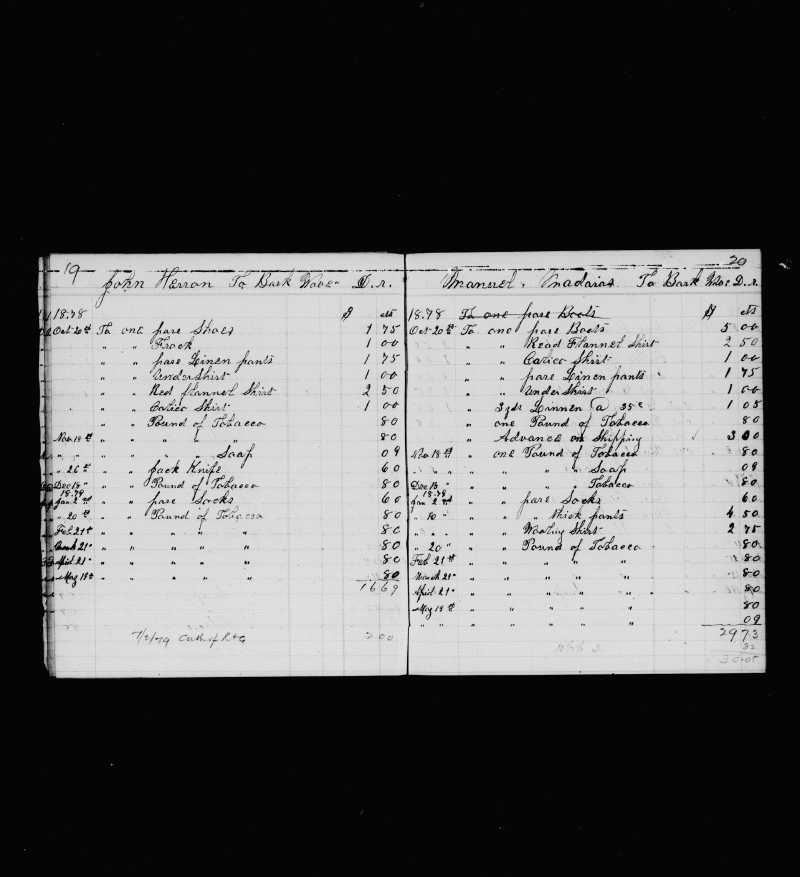 19
John Herron To Bark Wave D.r.
$ cts
1878
Oct 20th To one pare Shoes 1 75
" " Frock 1 00
" " pare Linen pants 1 75
" " Undershirt 1 00
" " Red flannel Shirt 2 50
" " Calico Shirt 1 00
" " Pound of Tobacco 80
Nov 18th " " " " " 80
" " " " " Soap 09
" 26th " " Jack Knife 60
Dec 18" " " Pound of Tobacco 80
1879
Jan 2nd " " pare Socks 60
" 20th " " Pound of Tobacco 80
Feb 21st " " " " " 80
March 21" " " " " " 80
April 21" " " " " " 80
May 18th " " " " " 80
16 69
7/2/79 Cash of 2 00
20
Manuel. Madarias To Bark D.r.
1878 To one pare Boots $ cts
Oct 20th To one pare Boots 5 00
" " Read Flannel Shirt 2 50
" " Calico Shirt 1 00
" " pare Linen pants 1 75
" " Under Shirt 1 00
" 3 yds Linnen @ 35c 1 05
" one Pound of Tobacco 80
" Advance on Shipping 3 00
Nov 18th " one Pound of Tobacco 80
" " " " " " Soap 09
Dec 18 " " " " Tobacco 80
1879
Jan 2nd " " pare Socks 60
" 10 " " " " thick pants 4 50
" " " " Shirt 2 75
" 20 " " " Pound of Tobacco 80
Feb 21st " " " " " 80
March 21" " " " " " 80
April 21" " " " " " 80
May 18th " " " " " 80
" " " " " " " 09
29 73
32
30 05